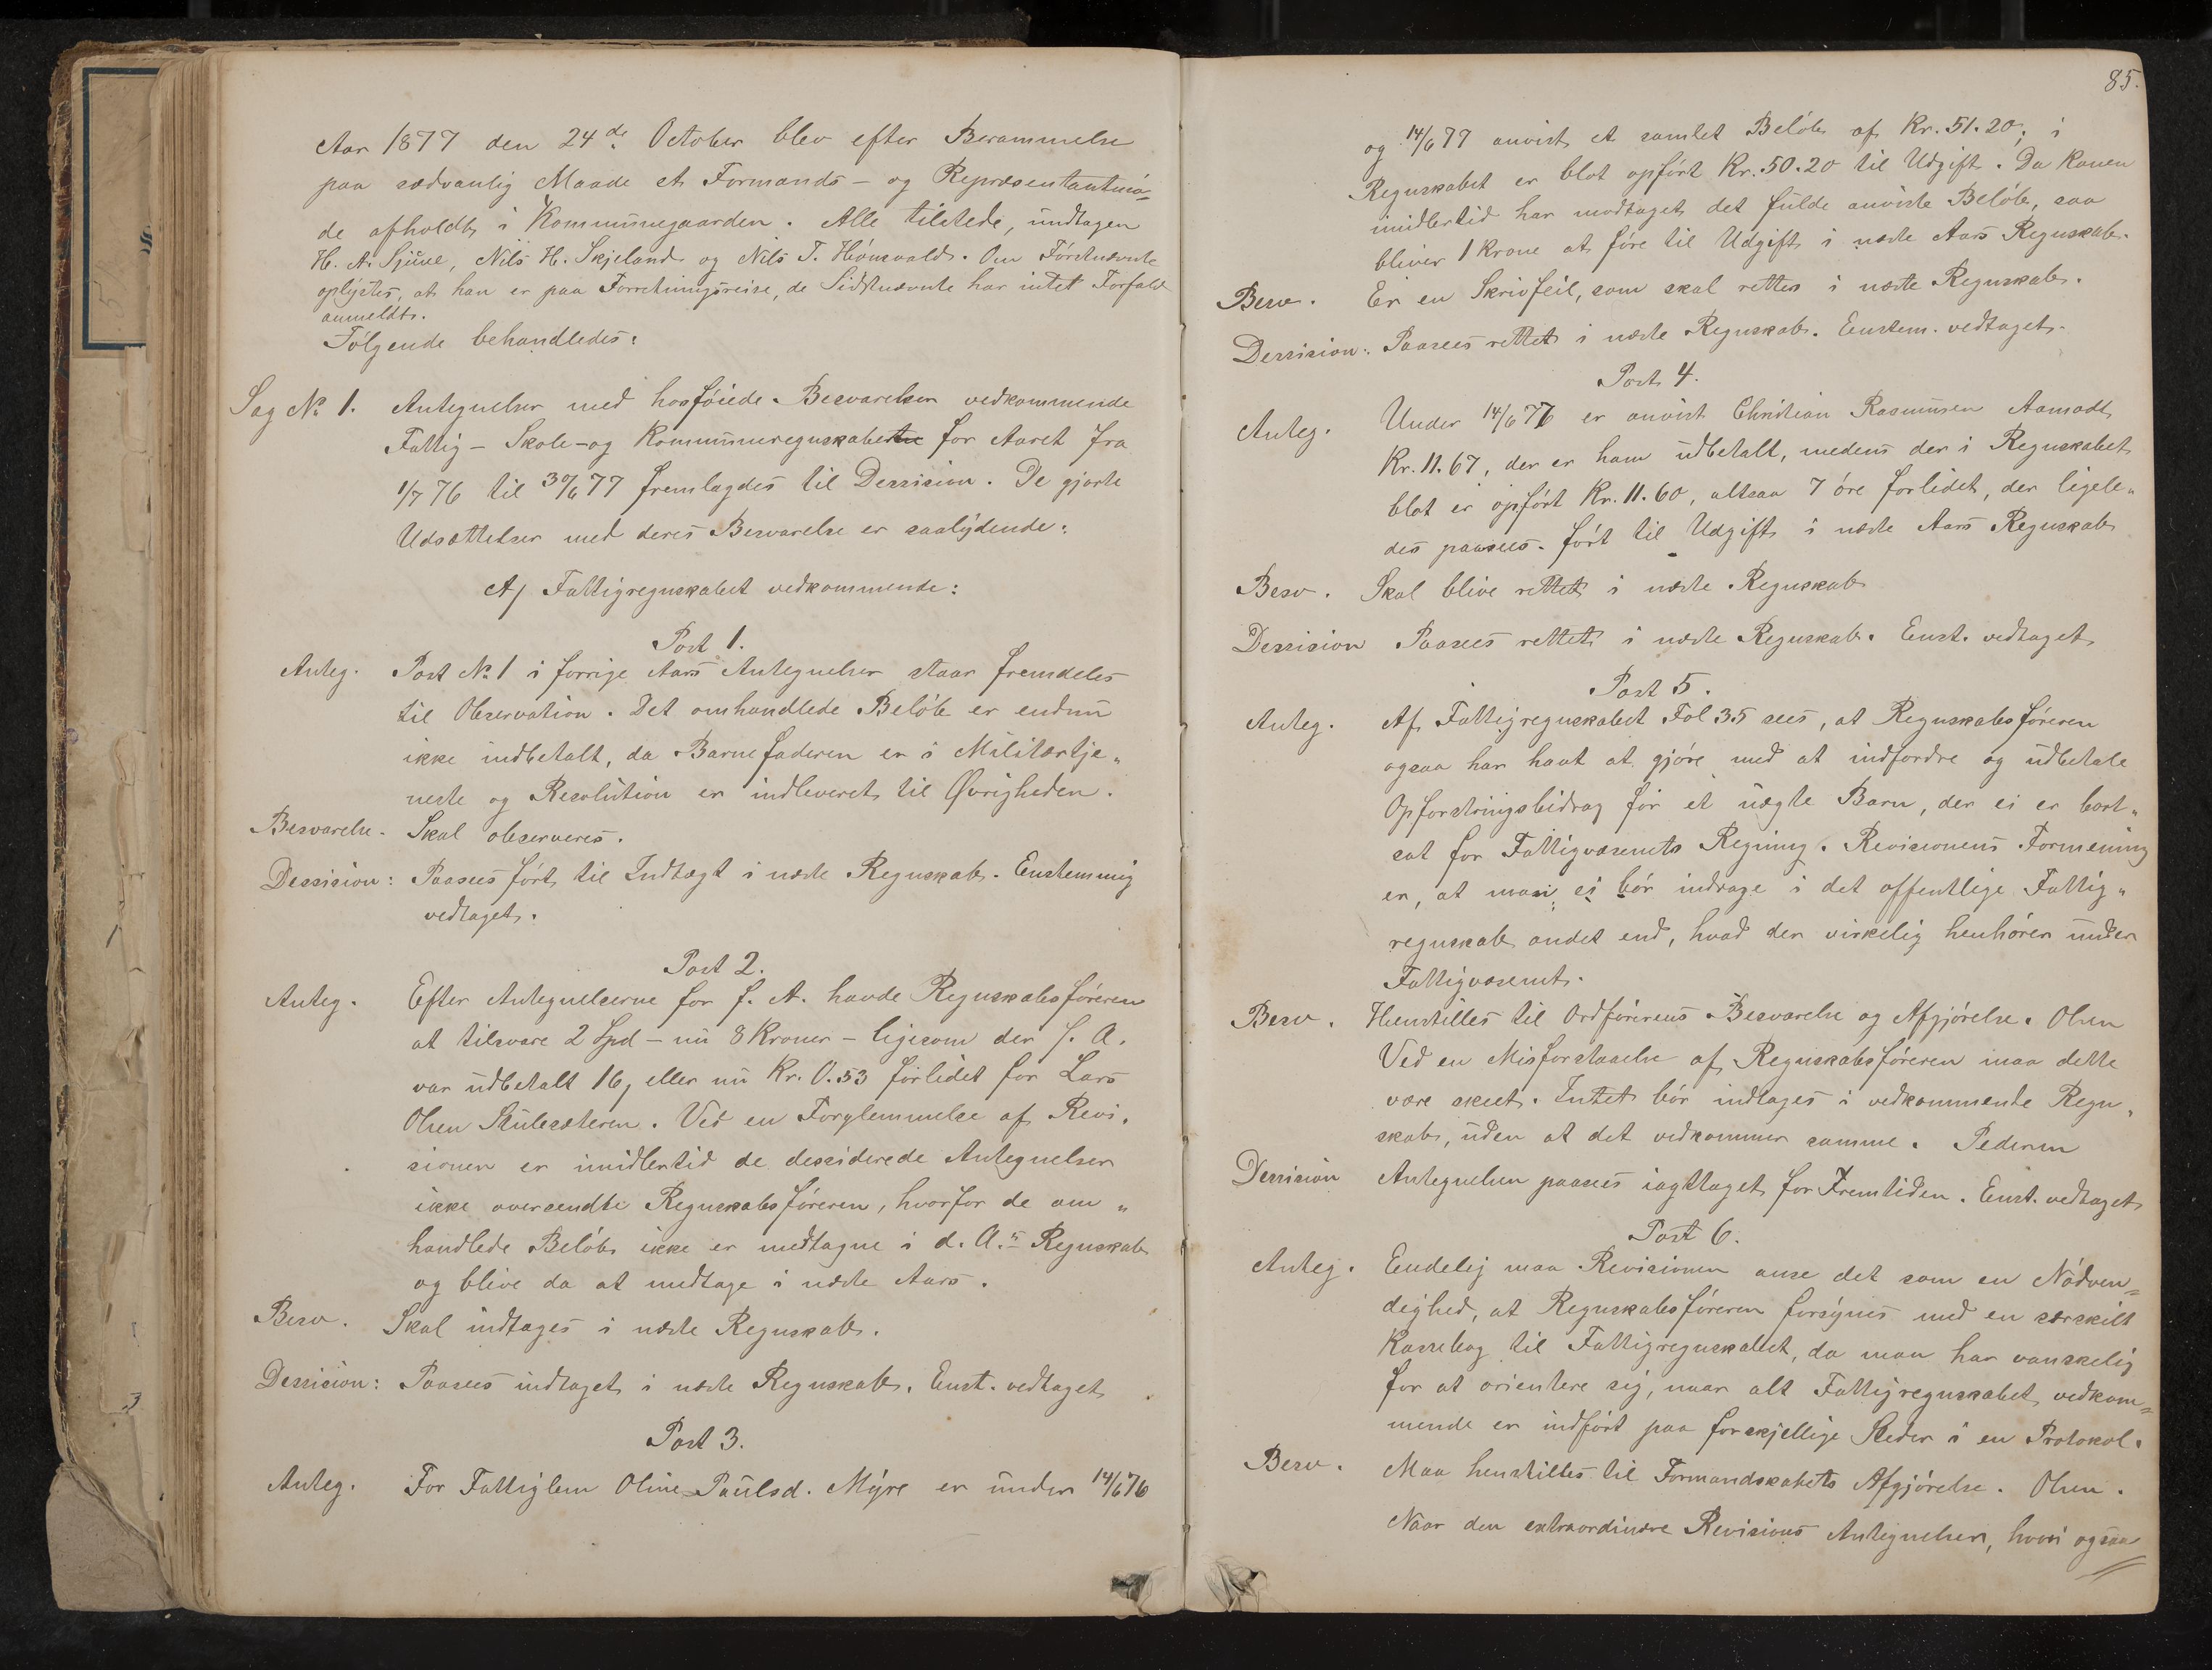 Aar 1877 den 24de October blev efter Berammelse
paa sædvanlig Maade et Formands- og Repræsentantmö=
de afholdt i Kommunegaarden. Alle tilstede, undtagen
H. A. Sjune, Nils H. Skjeland og Nils T. Hönsvald. Om Förstnævnte
oplystes, at han er paa Forretningsreise, de Sidstnævnte har intet Forfald
anmeldt.
Fölgende behandledes:
Sag No 1. Antegnelser med hosföiede Besvarelser vedkommende
Fattig- Skole- og Kommuneregnskabet for Aaret fra
1/7 76 til 30/6 77 fremlagdes til Dessision. De gjorte
Udsættelser med deres Besvarelse er saalydende:
A/ Fattigregnskabet vedkommende:
Post 1.
Anteg. Post No 1 i forrige Aars Antegnelser staar fremdeles
til Observation. Det omhandlede Beløb er endnu
ikke indbetalt, da Barnefaderen er i Militærtje„
neste og Resolution er indleveret til Øvrigheden.
Besvarelse. Skal observeres.
Dessision: Paasees ført til Indtægt i næste Regnskab. Enstemmig
vedtaget.
Post 2.
Anteg. Efter Antegnelserne for f. A. havde Regnskabsføreren
at tilsvare 2 Spd – nu 8 Kroner – ligesom der f. A.
var udbetalt 16/ eller nu Kr. 0.53 forlidet for Lars
Olsen Skulesæteren. Ved en Forglemmelse af Revi„
sionen er imidlertid de dessiderede Antegnelser
ikke oversendte Regnskabsføreren, hvorfor de om„
handlede Beløb ikke er medtagne i d. A.s Regnskab
og blive da at medtage i næste Aars.
Besv. Skal indtages i næste Regnskab.
Dessision: Paasees indtaget i næste Regnskab. Enst. vedtaget
Post 3.
Anteg. For Fattiglem Oline Paulsd. Myre er under 14/6 76
85.
og 14/6 77 anvist et samlet Beløb af Kr. 51.20, i
Regnskabet er blot opført Kr. 50.20 til Udgift. Da Konen
imidlertid har modtaget det fulde anviste Beløb, saa
bliver 1 Krone at føre til Udgift i næste Aars Regnskab.
Besv. Er en Skrivfeil, som skal rettes i næste Regnskab.
Dessision: Paasees rettet i næste Regnskab. Enstem. vedtaget.
Post 4.
Anteg. Under 14/6 76 er anvist Christian Rasmusen Aamodt
Kr. 11.67, der er ham udbetalt, medens der i Regnskabet
blot er opført Kr. 11.60, altsaa 7 øre forlidet, der ligele„
des paasees ført til Udgift i næste Aars Regnskab
Besv. Skal blive rettet i næste Regnskab
Dessision Paasees rettet i næste Regnskab. Enst. vedtaget
Post 5.
Anteg. Af Fattigregnskabet Fol 35 sees, at Regnskabsføreren
ogsaa har havt at gjøre med at indfordre og udbetale
Opfostringsbidrag for et uægte Barn, der ei er bort„
sat for Fattigvæsenets Regning. Revisionens Formening
er, at man ei bör inddrage i det offentlige Fattig„
regnskab andet end, hvad der virkelig henhører under
Fattigvæsenet.
Besv. Henstilles til Ordførerens Besvarelse og Afgjörelse. Olsen
Ved en Misforstaaelse af Regnskabsføreren maa dette
være skeet. Intet bör indtages i vedkommende Regn„
skab, uden at det vedkommer samme. Pedersen
Dessision Antegnelsen paasees iagttaget for Fremtiden. Enst. vedtaget
Post 6.
Anteg. Endelig maa Revisionen anse det som en Nødven=
dighed, at Regnskabsføreren forsynes med en særskilt
Kassebog til Fattigregnskabet, da man har vanskelig
for at orientere sig, naar alt Fattigregnskabet vedkom=
mende er indført paa forskjellige Steder i en Protokol.
Besv. Maa henstilles til Formandskabets Afgjörelse. Olsen.
Naar den extraordinære Revisions Antegnelser, hvori ogsaa